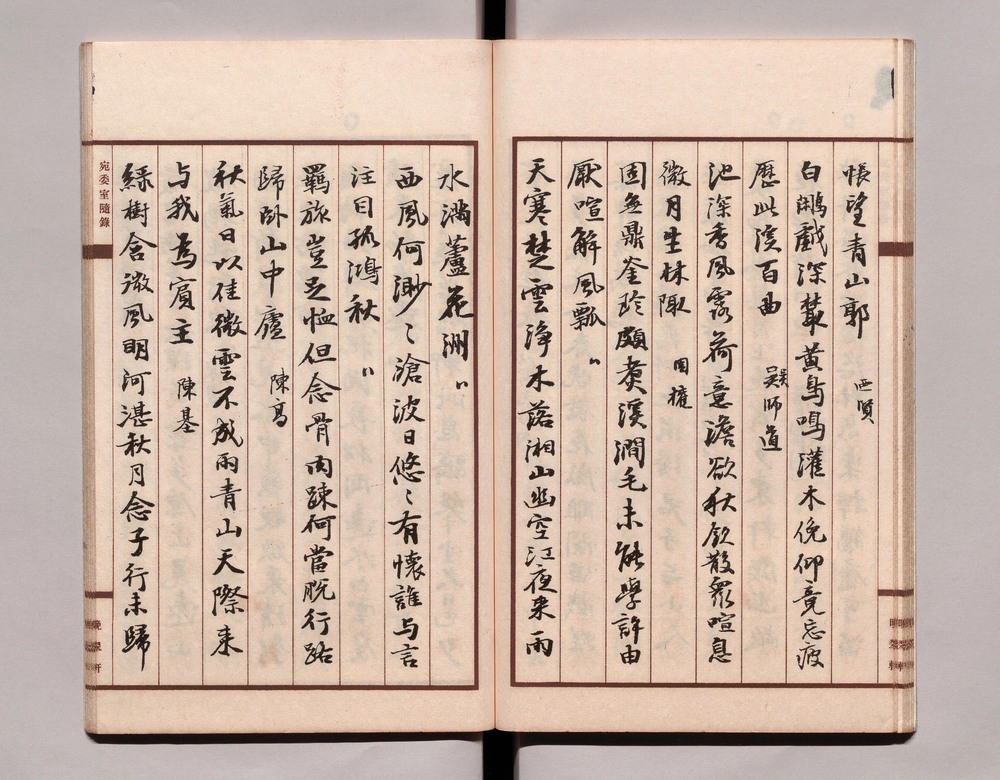 悵望青山郭　迺賢
白鷳戲深叢黃鳥鳴灌木俛仰竟忘疲
歷此溪百曲　吳師道
池深香風露荷意澹欲秋飲散衆喧息
微月生林陬　周權
固無鼎釜珍頗煑溪澗毛未能學許由
厭喧解風瓢　〃
天寒楚雲淨木落湘山幽空江夜來雨
水滿蘆花洲　〃
西風何渺〻滄波日悠〻有懷誰与言
注目孤鴻秋　〃
羈旅豈足恤但念骨肉疎何當脫行路
歸卧山中廬　陳高
秋氣日以佳微雲不成雨青山天際來
与我為賓主　陳基
綠樹含微風明河湛秋月念子行未歸
宛委室隨錄